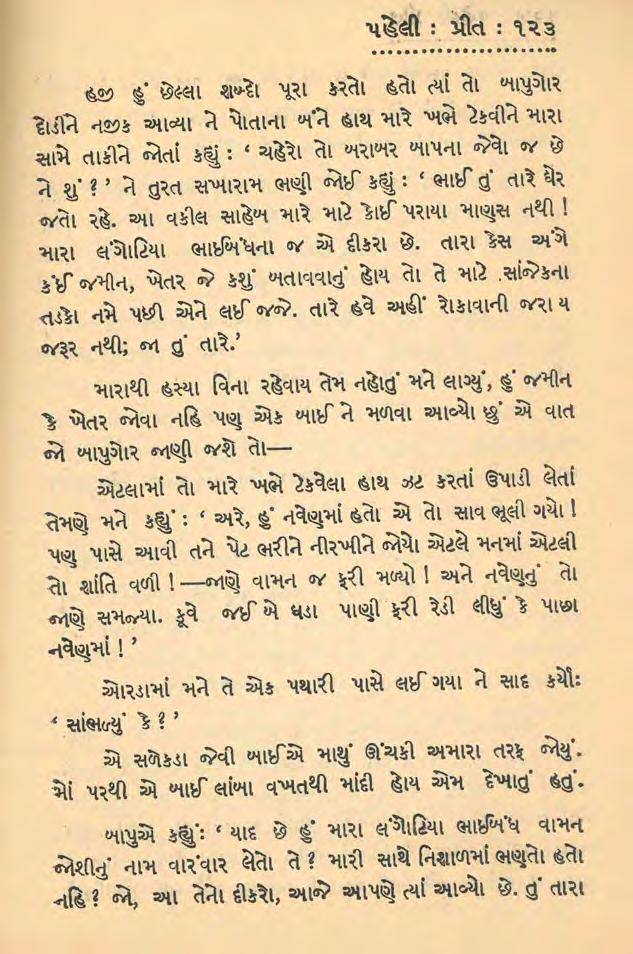 પહેલી : પ્રીત : ૧૨૩
હજી હું છેલ્લા શબ્દો પૂરા કરતો હતો ત્યાં તો બાપુગોર
દોડીને નજીક આવ્યા ને પોતાના બંને હાથ મારે ખભે ટેકવીને મારા
સામે તાકીને જોતાં કહ્યું : ‘ ચહેરો તો બરાબર બાપના જેવો જ છે
ને શું ? ’ ને તુરત સખારામ ભણી જોઈ કહ્યું : ‘ ભાઈ તું તારે ઘેર
જતો રહે. આ વકીલ સાહેબ મારે માટે કોઈ પરાયા માણુસ નથી !
મારા લંગોટિયા ભાઈબંધના જ એ દીકરા છે. તારા કેસ અંગે
કંઈ જમીન, ખેતર જે કશું બતાવવાનું હોય તો તે માટે સાંજેકના
તડકો નમે પછી એને લઈ જજે. તારે હવે અહીં રોકાવાની જરા ય
જરૂર નથી; જા તું તારે.’
મારાથી હસ્યા વિના રહેવાય તેમ નહોતું મને લાગ્યું, હું જમીન
કે ખેતર જોવા નહિ પણ એક બાઈ ને મળવા આવ્યો છું એ વાત
જો બાપુગોર જાણી જશે તો—
એટલામાં તો મારે ખભે ટેકવેલા હાથ ઝટ કરતાં ઉપાડી લેતાં
તેમણે મને કહ્યું : ‘ અરે, હું નવેણમાં હતો એ તો સાવ ભૂલી ગયો !
પણ પાસે આવી તને પેટ ભરીને નીરખીને જોયો એટલે મનમાં એટલી
તો શાંતિ વળી !—જાણે વામન જ ફરી મળ્યો ! અને નવેણનું તો
જાણે સમજ્યા. કૂવે જઈ બે ઘડા પાણી ફરી રેડી લીધું કે પાછા
નવેણમાં ! ’
ઓરડામાં મને તે એક પથારી પાસે લઈ ગયા ને સાદ કર્યોઃ
‘ સાંભળ્યું કે ? ’
એ સળેકડા જેવી બાઈએ માથું ઊંચકી અમારા તરફ જોયું.
મોં પરથી એ બાઈ લાંબા વખતથી માંદી હોય એમ દેખાતું હતું.
બાપુએ કહ્યુંઃ ‘ યાદ છે હું મારા લંગોટિયા ભાઈબંધ વામન
જોશીનું નામ વારંવાર લેતો તે ? મારી સાથે નિશાળમાં ભણતો હતો
નહિ ? જો, આ તેનો દીકરો, આજે આપણે ત્યાં આવ્યો છે. તું તારા